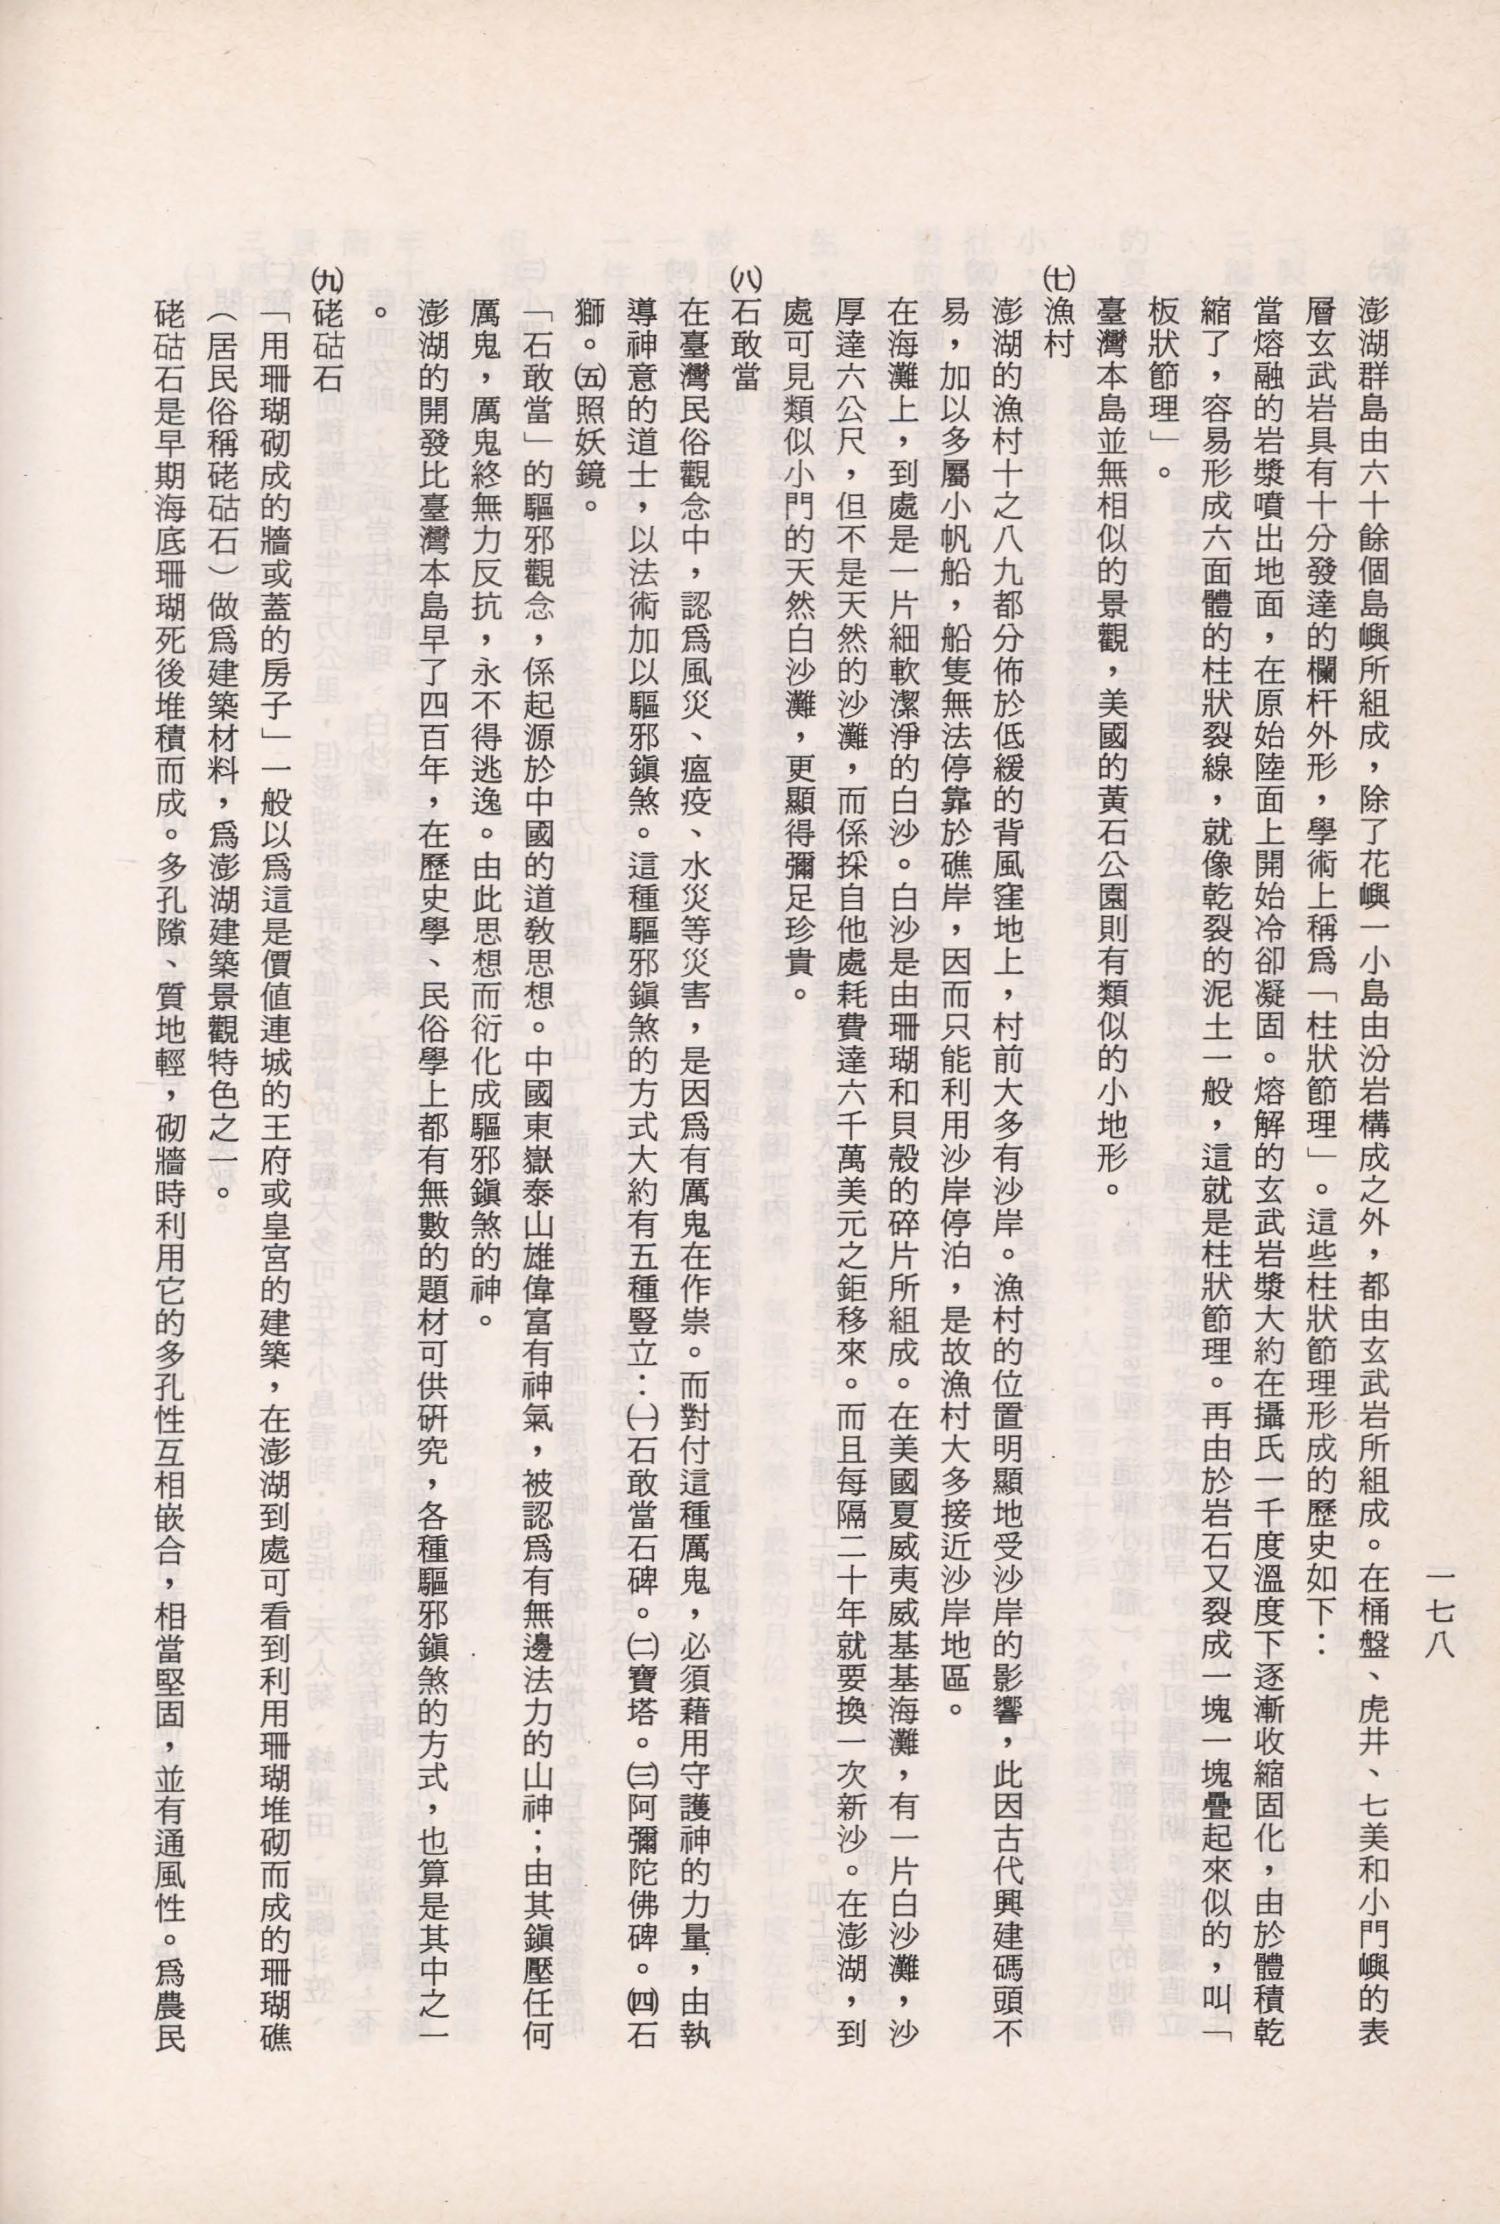 一七八
澎湖群島由六十餘個島嶼所組成，除了花嶼一小島由汾岩構成之外，都由玄武岩所組成。在桶盤、虎井、七美和小門嶼的表
層玄武岩具有十分發達的欄杆外形，學術上稱爲「柱狀節理」。這些柱狀節理形成的歷史如下：
當熔融的岩漿噴出地面，在原始陸面上開始冷卻凝固。熔解的玄武岩漿大約在攝氏一千度溫度下逐漸收縮固化，由於體積乾
縮了，容易形成六面體的柱狀裂線，就像乾裂的泥土一般，這就是柱狀節理。再由於岩石又裂成一塊一塊疊起來似的，叫「
板狀節理」。
臺灣本島並無相似的景觀，美國的黃石公園則有類似的小地形。
㈦漁村
澎湖的漁村十之八九都分佈於低緩的背風窪地上，村前大多有沙岸。漁村的位置明顯地受沙岸的影響，此因古代興建碼頭不
易，加以多屬小帆船，船隻無法停靠於礁岸，因而只能利用沙岸停泊，是故漁村大多接近沙岸地區。
在海灘上，到處是一片細軟潔淨的白沙。白沙是由珊瑚和貝殼的碎片所組成。在美國夏威夷威基基海灘，有一片白沙灘，沙
厚達六公尺，但不是天然的沙灘，而係採自他處耗費達六千萬美元之鉅移來。而且每隔二十年就要換一次新沙。在澎湖，到
處可見類似小門的天然白沙灘，更顯得彌足珍貴。
㈧石敢當
在臺灣民俗觀念中，認爲風災、瘟疫、水災等災害，是因爲有厲鬼在作祟。而對付這種厲鬼，必須藉用守護神的力量，由執
導神意的道士，以法術加以驅邪鎭煞。這種驅邪鎭煞的方式大約有五種豎立：㈠石敢當石碑。㈡寶塔。㈢阿彌陀佛碑。㈣石
獅。㈤照妖鏡。
「石敢當」的驅邪觀念，係起源於中國的道敎思想。中國東嶽泰山雄偉富有神氣，被認爲有無邊法力的山神；由其鎭壓任何
厲鬼，厲鬼終無力反抗，永不得逃逸。由此思想而衍化成驅邪鎭煞的神。
澎湖的開發比臺灣本島早了四百年，在歷史學、民俗學上都有無數的題材可供硏究，各種驅邪鎭煞的方式，也算是其中之一
。
㈨硓𥑮石
「用珊瑚砌成的牆或蓋的房子」一般以爲這是價値連城的王府或皇宮的建築，在澎湖到處可看到利用珊瑚堆砌而成的珊瑚礁
（居民俗稱硓𥑮石）做爲建築材料，爲澎湖建築景觀特色之一。
硓𥑮石是早期海底珊瑚死後堆積而成。多孔隙、質地輕，砌牆時利用它的多孔性互相嵌合，相當堅固，並有通風性。爲農民